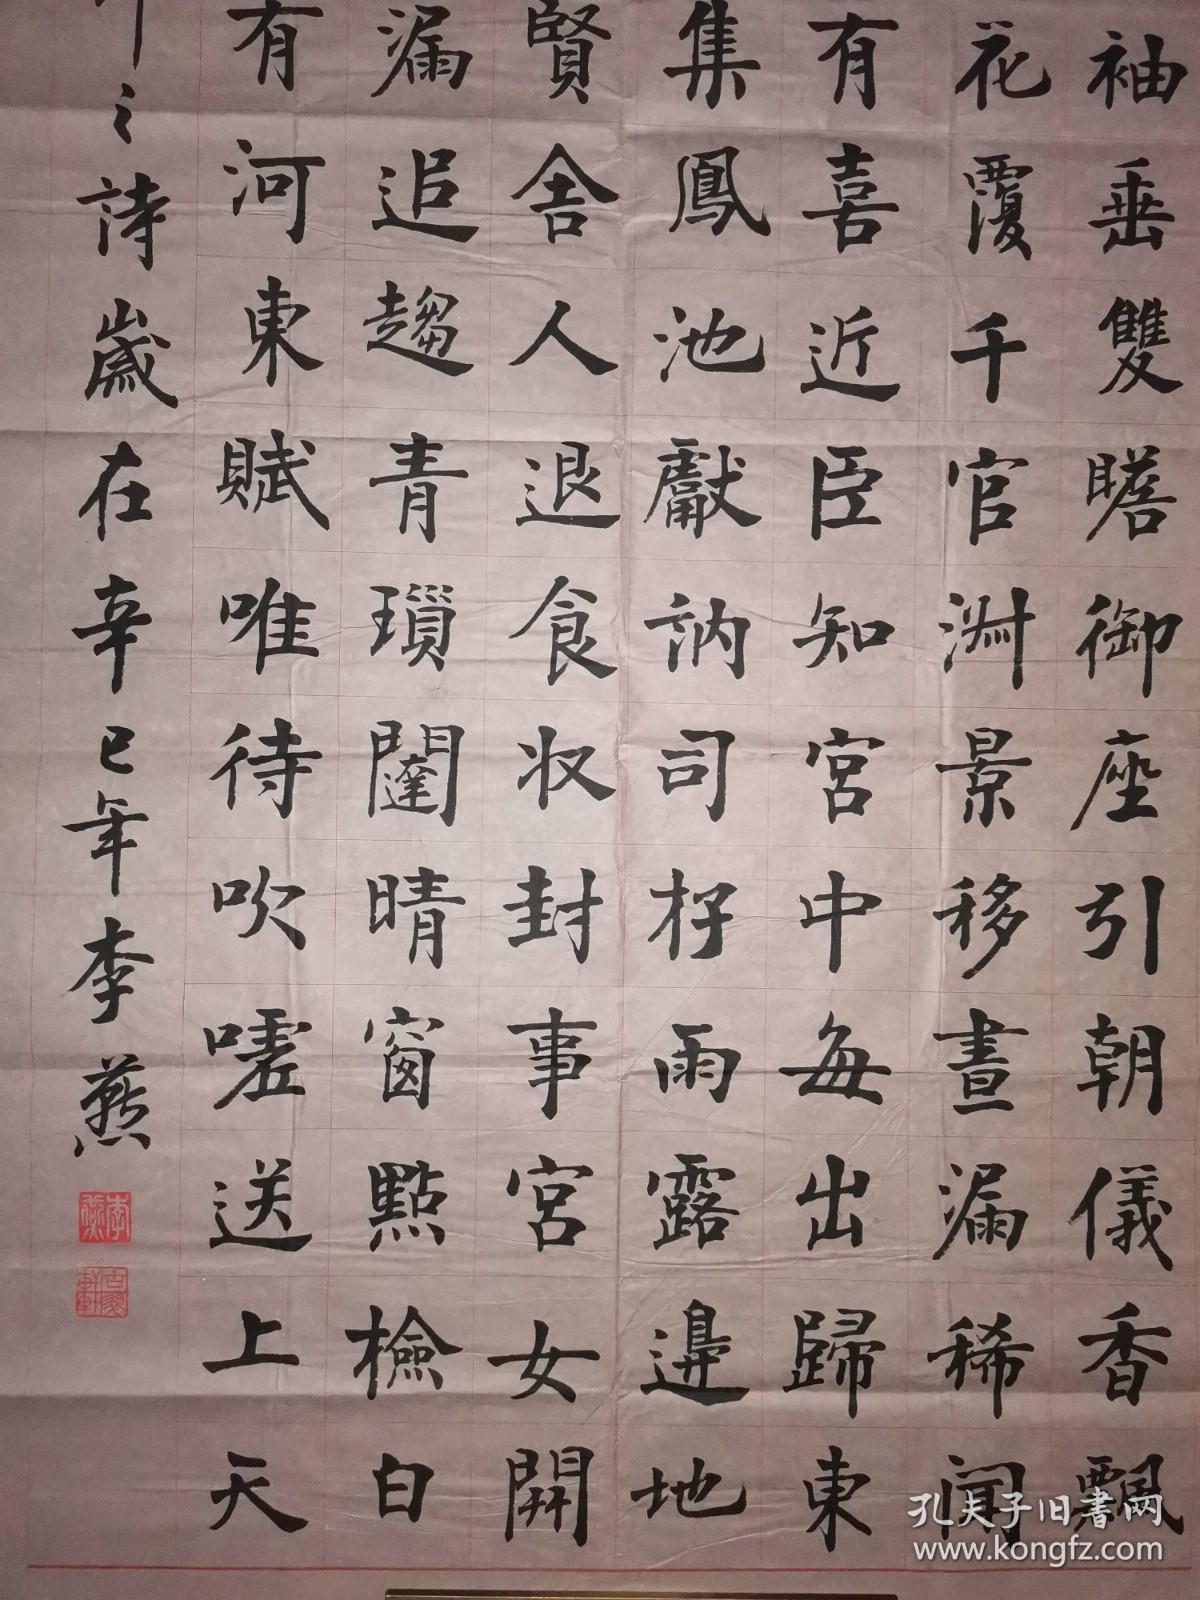 袖垂雙瞻御座引朝儀香飄
花覆千官淑景移晝漏稀聞
有喜近臣知宮中每出歸東
集鳳池獻訥司存雨露邊地
賢舍人退食收封事宮女開
漏追趨青瑣闥晴窗點檢白
有河東賦唯待吹噓送上天
之詩歲在辛巳年李燕
李燕
孔夫子旧书网
www.kongfz.com